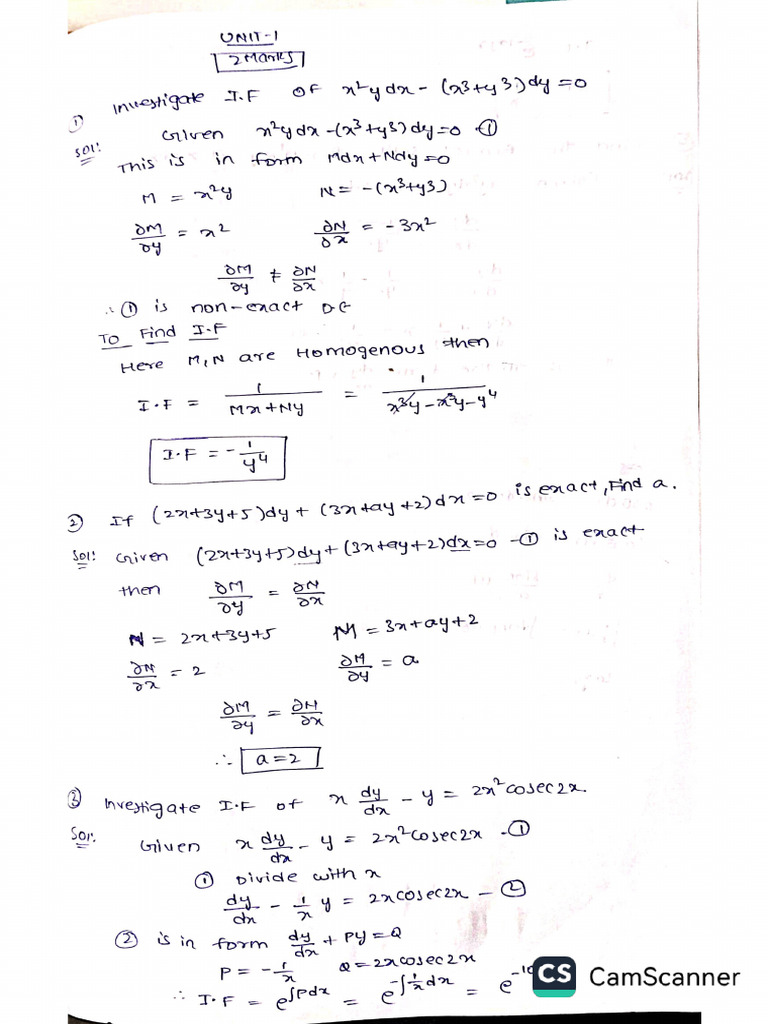 UNIT-1
2 Marks
① Investigate I.F OF x²y dx - (x3+y3)dy=0
Sol: Given x²y dx -(x³+y3) dy=0 -①
This is in form Mdx+Ndy=0
M = x²y N = -(x³+y3)
∂M/∂y = x² ∂N/∂x = -3x²
∂M/∂y ≠ ∂N/∂x
∴ ① is non-exact DE
To Find I.F
Here M,N are Homogenous then
I.F = 1/(Mx+Ny) = 1/(x³y - x³y - y⁴)
I.F = -1/y⁴
② If (2x+3y+5)dy + (3x+ay+2)dx =0 is exact, Find a.
Sol: Given (2x+3y+5)dy+(3x+ay+2)dx=0 -① is exact
then ∂M/∂y = ∂N/∂x
N = 2x+3y+5 M = 3x+ay+2
∂N/∂x = 2 ∂M/∂y = a
∂M/∂y = ∂N/∂x
∴ a=2
③ Investigate I.F of x dy/dx - y = 2x²cosec2x.
Sol: Given x dy/dx - y = 2x²cosec2x -①
① Divide with x
dy/dx - 1/x y = 2xcosec2x - ②
② is in form dy/dx + Py=Q
P = -1/x Q=2xcosec2x
∴ I.F = e^∫Pdx = e^-∫1/x dx = e
CS CamScanner